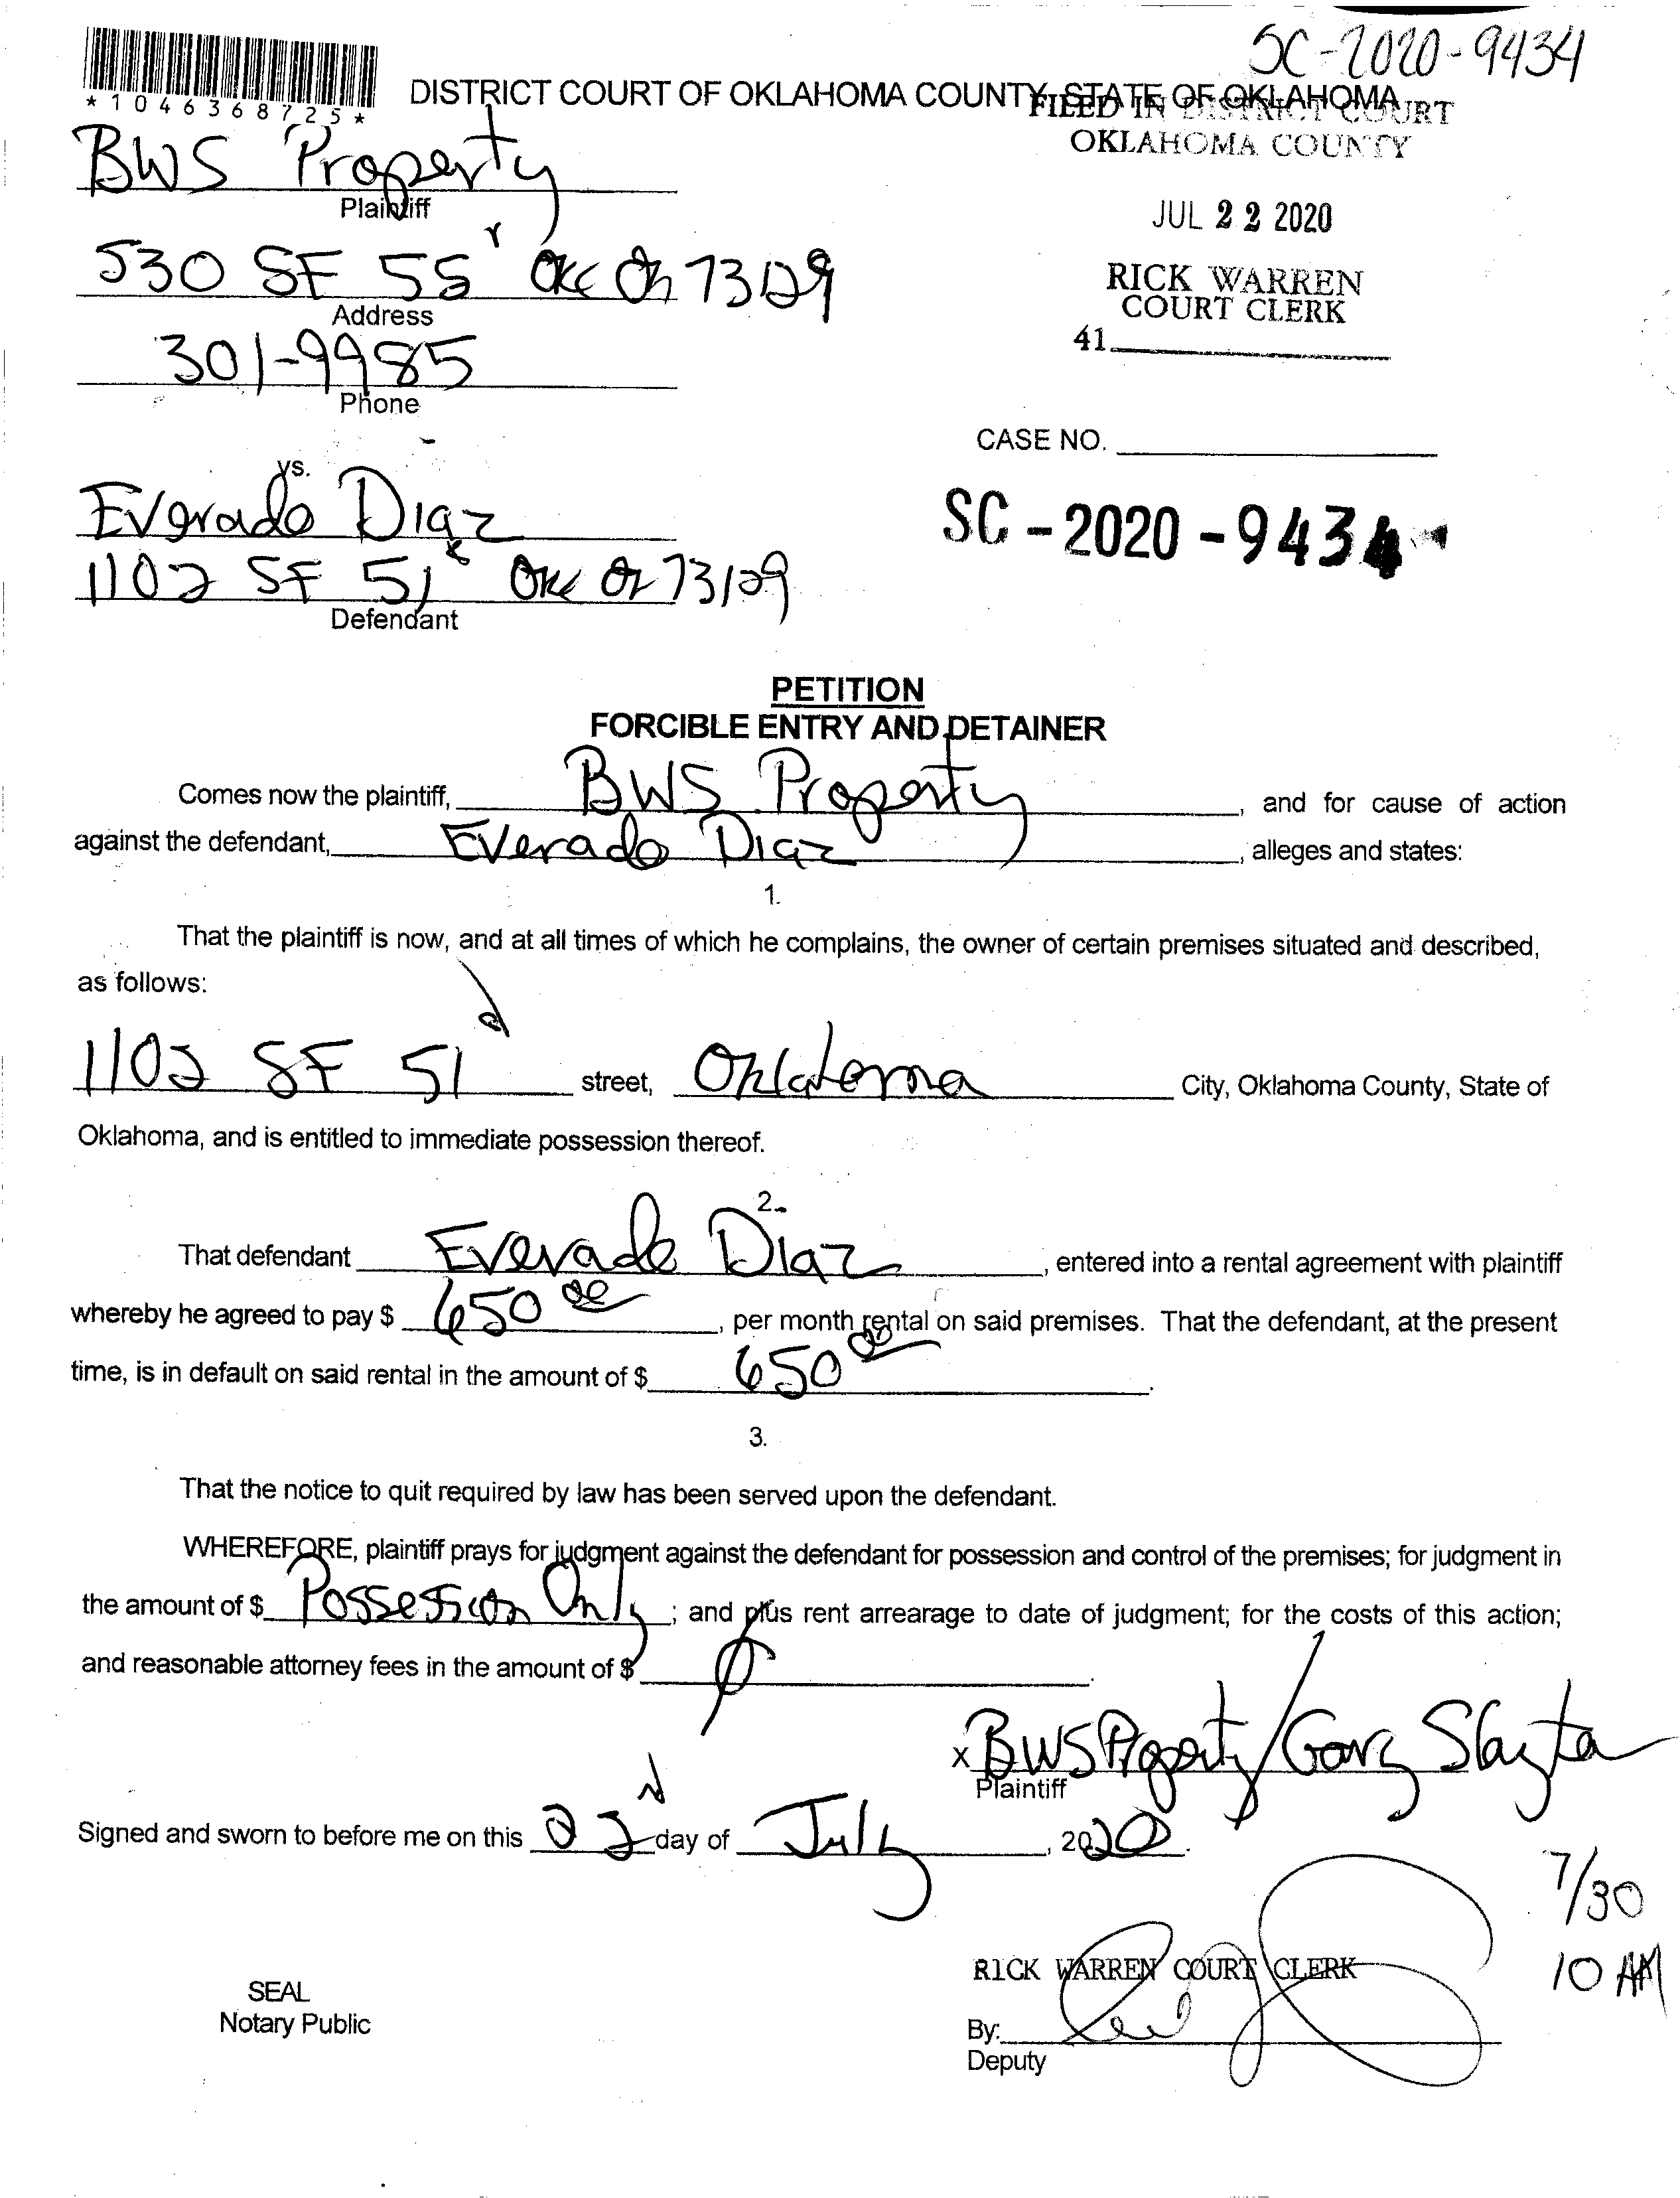 SC-2020-9434
*1046368725*
DISTRICT COURT OF OKLAHOMA COUNTY, STATE OF OKLAHOMA
FILED IN DISTRICT COURT
OKLAHOMA COUNTY
BWS Property
Plaintiff
JUL 22 2020
530 SE 55 OKC Ok 73129
Address
RICK WARREN
COURT CLERK
41
301-9985
Phone
CASE NO.
vs.
Everado Diaz
SC-2020-9434
1102 SE 51 OKC Ok 73129
Defendant
PETITION
FORCIBLE ENTRY AND DETAINER
Comes now the plaintiff, BWS Property, and for cause of action
against the defendant, Everado Diaz, alleges and states:
1.
That the plaintiff is now, and at all times of which he complains, the owner of certain premises situated and described,
as follows:
1102 SE 51 street, Oklahoma City, Oklahoma County, State of
Oklahoma, and is entitled to immediate possession thereof.
2.
That defendant Everado Diaz, entered into a rental agreement with plaintiff
whereby he agreed to pay $ 650 00, per month rental on said premises. That the defendant, at the present
time, is in default on said rental in the amount of $ 650 00.
3.
That the notice to quit required by law has been served upon the defendant.
WHEREFORE, plaintiff prays for judgment against the defendant for possession and control of the premises; for judgment in
the amount of $ Possession Only; and plus rent arrearage to date of judgment; for the costs of this action;
and reasonable attorney fees in the amount of $ Ø.
x BWS Property/Gary
Plaintiff
Signed and sworn to before me on this 22 day of July, 2020.
7/30
10 AM
RICK WARREN COURT CLERK
SEAL
Notary Public
By:
Deputy